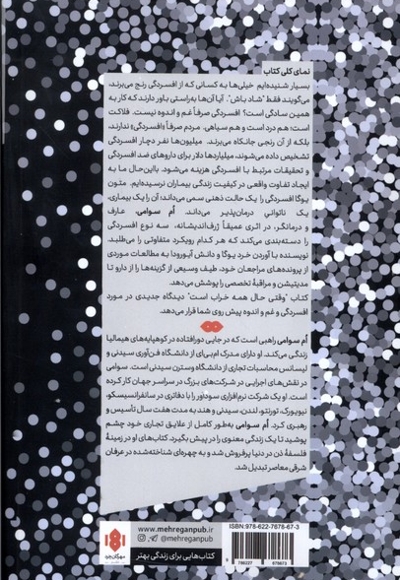 نمای کلی کتاب
بسیار شنیده‌ایم خیلی‌ها به کسانی که از افسردگی رنج می‌برند،
می‌گویند فقط "شاد باش". آیا آن‌ها به‌راستی باور دارند که کار به
همین سادگی است؟ افسردگی صرفاً غم و اندوه نیست. فلاکت
است؛ هم درد است و هم سیاهی. مردم صرفاً «افسردگی» ندارند،
بلکه از آن رنجی جانکاه می‌برند. میلیون‌ها نفر دچار افسردگی
تشخیص داده می‌شوند، میلیاردها دلار برای داروهای ضد افسردگی
و تحقیقات مرتبط با افسردگی هزینه می‌شود. بااین‌حال ما به
ایجاد تفاوت واقعی در کیفیت زندگی بیماران نرسیده‌ایم. متون
یوگا افسردگی را یک حالت ذهنی سمی می‌داند؛ آن را یک بیماری،
یک ناتوانی درمان‌پذیر می‌داند. اُم سوامی، عارف
و درمانگر، در اثری عمیقاً ژرف‌اندیشانه، سه نوع افسردگی
را دسته‌بندی می‌کند که هر کدام رویکرد متفاوتی را می‌طلبد.
نویسنده با آوردن خرد یوگا و دانش آیورودا به مطالعات موردی
از پرونده‌های مراجعان خود، طیف وسیعی از گزینه‌ها را از دارو تا
مدیتیشن و مراقبهٔ تخصصی را پوشش می‌دهد.
کتاب "وقتی حال همه خراب است" دیدگاه جدیدی در مورد
افسردگی و غم و اندوه پیش روی شما قرار می‌دهد.
اُم سوامی راهبی است که در جایی دورافتاده در کوهپایه‌های هیمالیا
زندگی می‌کند. او دارای مدرک ام‌بی‌ای از دانشگاه فن‌آوری سیدنی و
لیسانس محاسبات تجاری از دانشگاه وسترن سیدنی است. سوامی
در نقش‌های اجرایی در شرکت‌های بزرگ در سراسر جهان کار کرده
است. او یک شرکت نرم‌افزاری سودآور را با دفاتری در سانفرانسیسکو،
نیویورک، تورنتو، لندن، سیدنی و هند به مدت هفت سال تأسیس و
رهبری کرد. اُم سوامی به‌طور کامل از علایق تجاری خود چشم
پوشید تا یک زندگی معنوی را در پیش بگیرد. کتاب‌های او در زمینهٔ
فلسفهٔ ذن در دنیا پرفروش شد و به چهره‌ای شناخته‌شده در عرفان
شرقی معاصر تبدیل شد.
ISBN: 978-622-7678-67-3
9 786227 678673
www.mehreganpub.ir
@mehreganpub.ir
کتاب‌هایی برای زندگی بهتر
مهرگان خرد